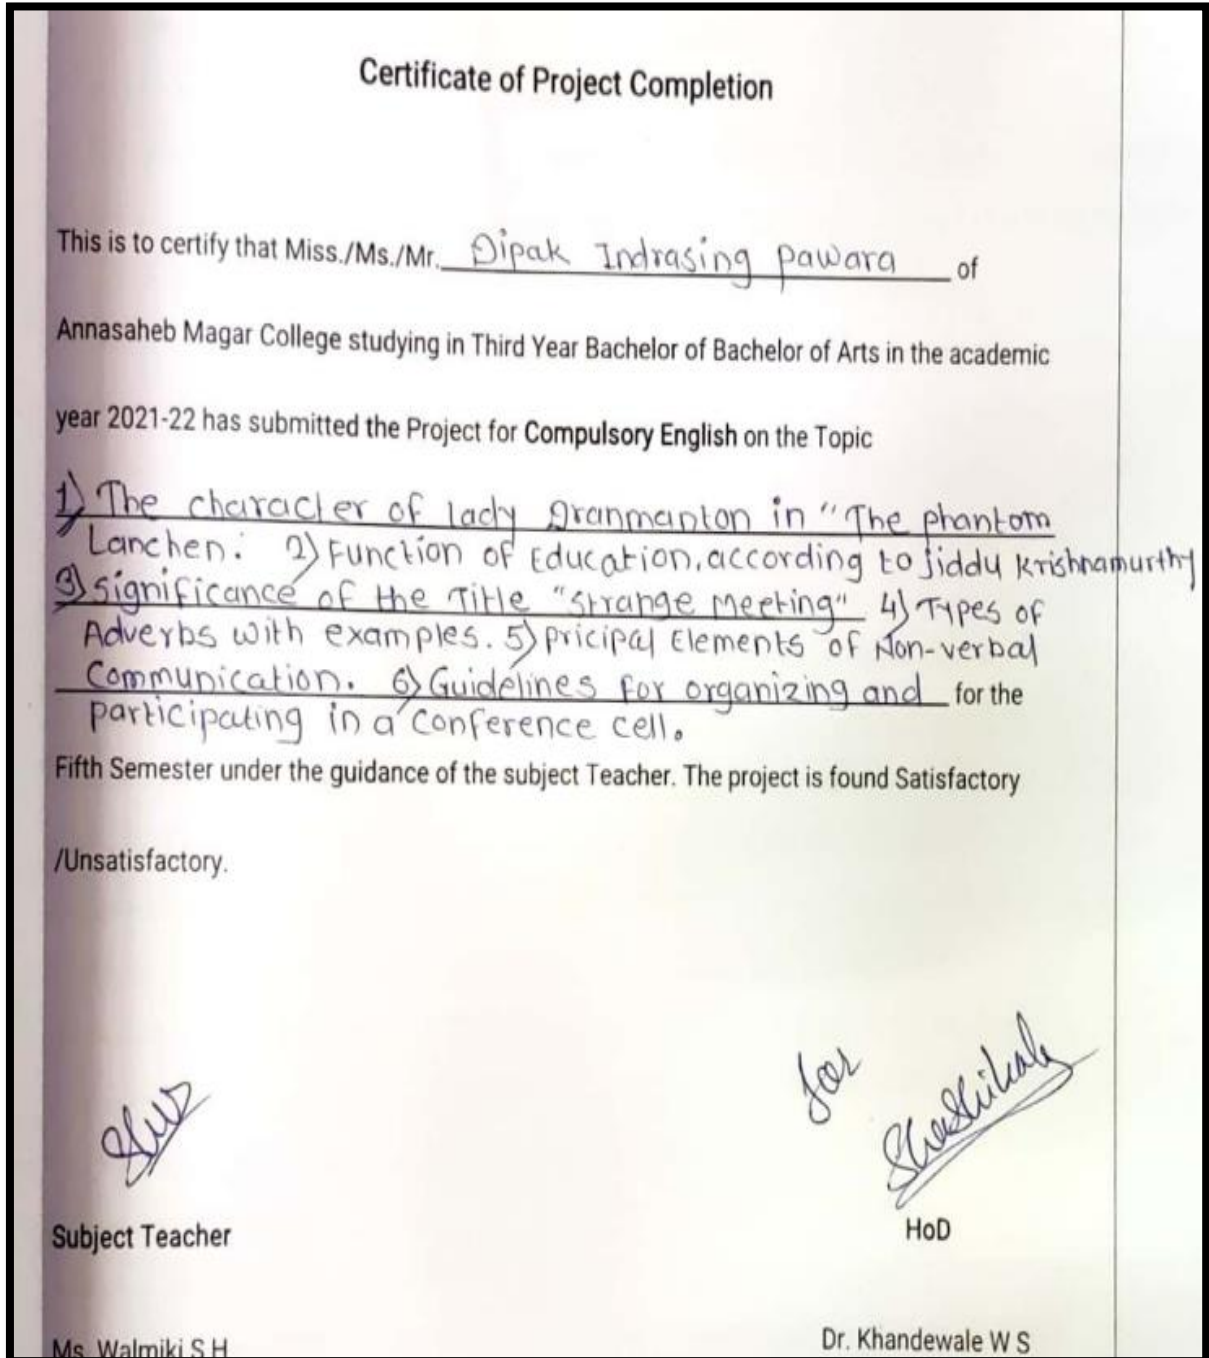 Certificate of Project Completion
This is to certify that Miss./Ms./Mr. Dipak Indrasing pawara of
Annasaheb Magar College studying in Third Year Bachelor of Bachelor of Arts in the academic
year 2021-22 has submitted the Project for Compulsory English on the Topic
1) The character of lady Dranmanton in "The phantom
Lanchen. 2) Function of Education, according to Jiddu Krishnamurthy
3) significance of the Title "strange Meeting" 4) Types of
Adverbs with examples. 5) pricipal Elements of Non-verbal
Communication. 6) Guidelines for organizing and for the
participating in a conference cell.
Fifth Semester under the guidance of the subject Teacher. The project is found Satisfactory
/Unsatisfactory.
for
Subject Teacher
HoD
Ms. Walmiki S H
Dr. Khandewale W S